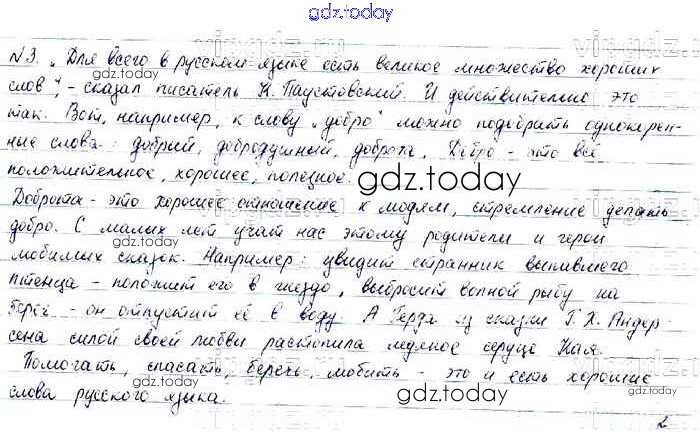 gdz.today
№3. „Для всего в русском языке есть великое множество хороших
слов", - сказал писатель К. Паустовский. И действительно это
так. Вот, например, к слову „добро" можно подобрать однокорен-
ные слова: добрый, добродушный, доброта. Добро - это всё
положительное, хорошее, полезное.
Доброта - это хорошее отношение к людям, стремление делать
добро. С малых лет учат нас этому родители и герои
любимых сказок. Например: увидит странник выпавшего
птенца - положит его в гнездо, выбросит волной рыбу на
берег - он отпустит её в воду. А Герда из сказки Г. Х. Андер
сена силой своей любви растопила ледяное сердце Кая.
Помогать, спасать, беречь, любить - это и есть хорошие
слова русского языка.
gdz.today
gdz.today
gdz.today
gdz.today
gdz.today
gdz.today
gdz.today
2